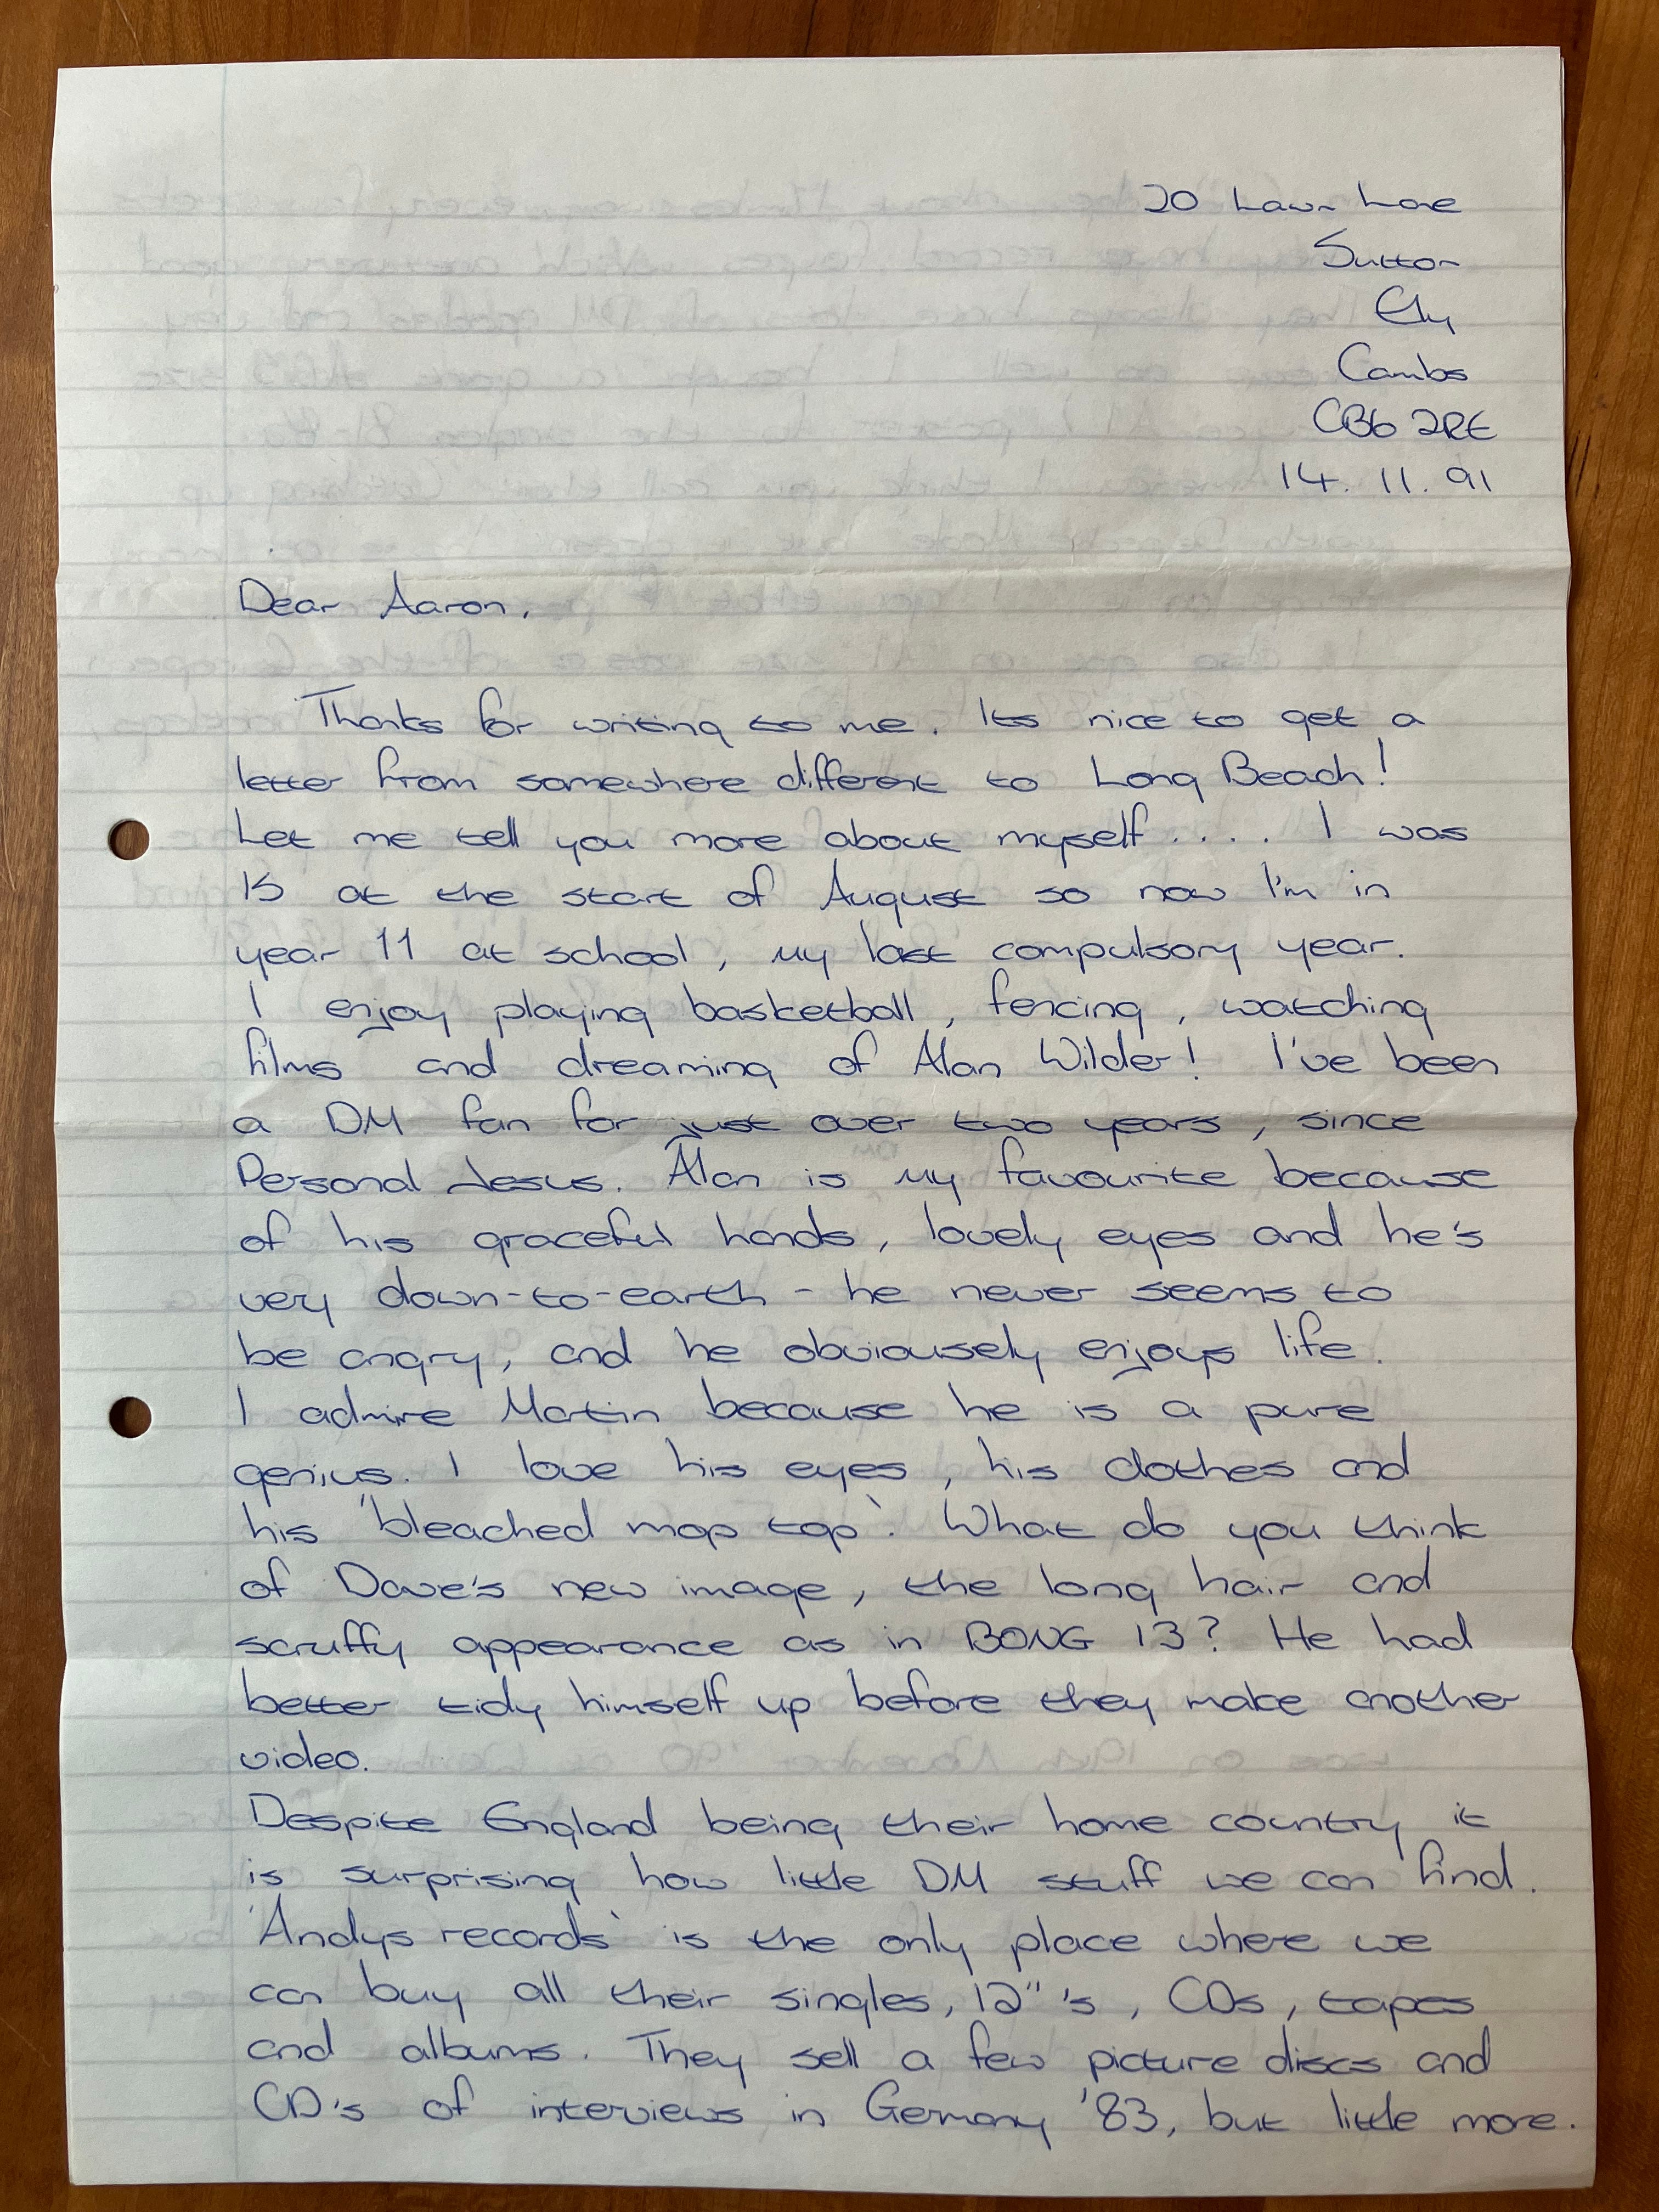 20 Lawn Lane
Sutton
Ely
Cambs
CB6 2RE
14. 11. 91
Dear Aaron,
Thanks for writing to me. Its nice to get a
letter from somewhere different to Long Beach!
Let me tell you more about myself.... I was
15 at the start of August so now I'm in
year 11 at school, my last compulsory year.
I enjoy playing basketball, fencing, watching
films and dreaming of Alan Wilder! I've been
a DM fan for just over two years, since
Personal Jesus. Alan is my favourite because
of his graceful hands, lovely eyes and he's
very down-to-earth - he never seems to
be angry, and he obviousely enjoys life.
I admire Martin because he is a pure
genius. I love his eyes, his clothes and
his 'bleached mop top'. What do you think
of Dave's new image, the long hair and
scruffy appearance as in BONG 13? He had
better tidy himself up before they make another
video.
Despite England being their home country it
is surprising how little DM stuff we can find.
'Andys records' is the only place where we
can buy all their singles, 12"'s, CDs, tapes
and albums. They sell a few picture discs and
CD's of interviews in Germany '83, but little more.